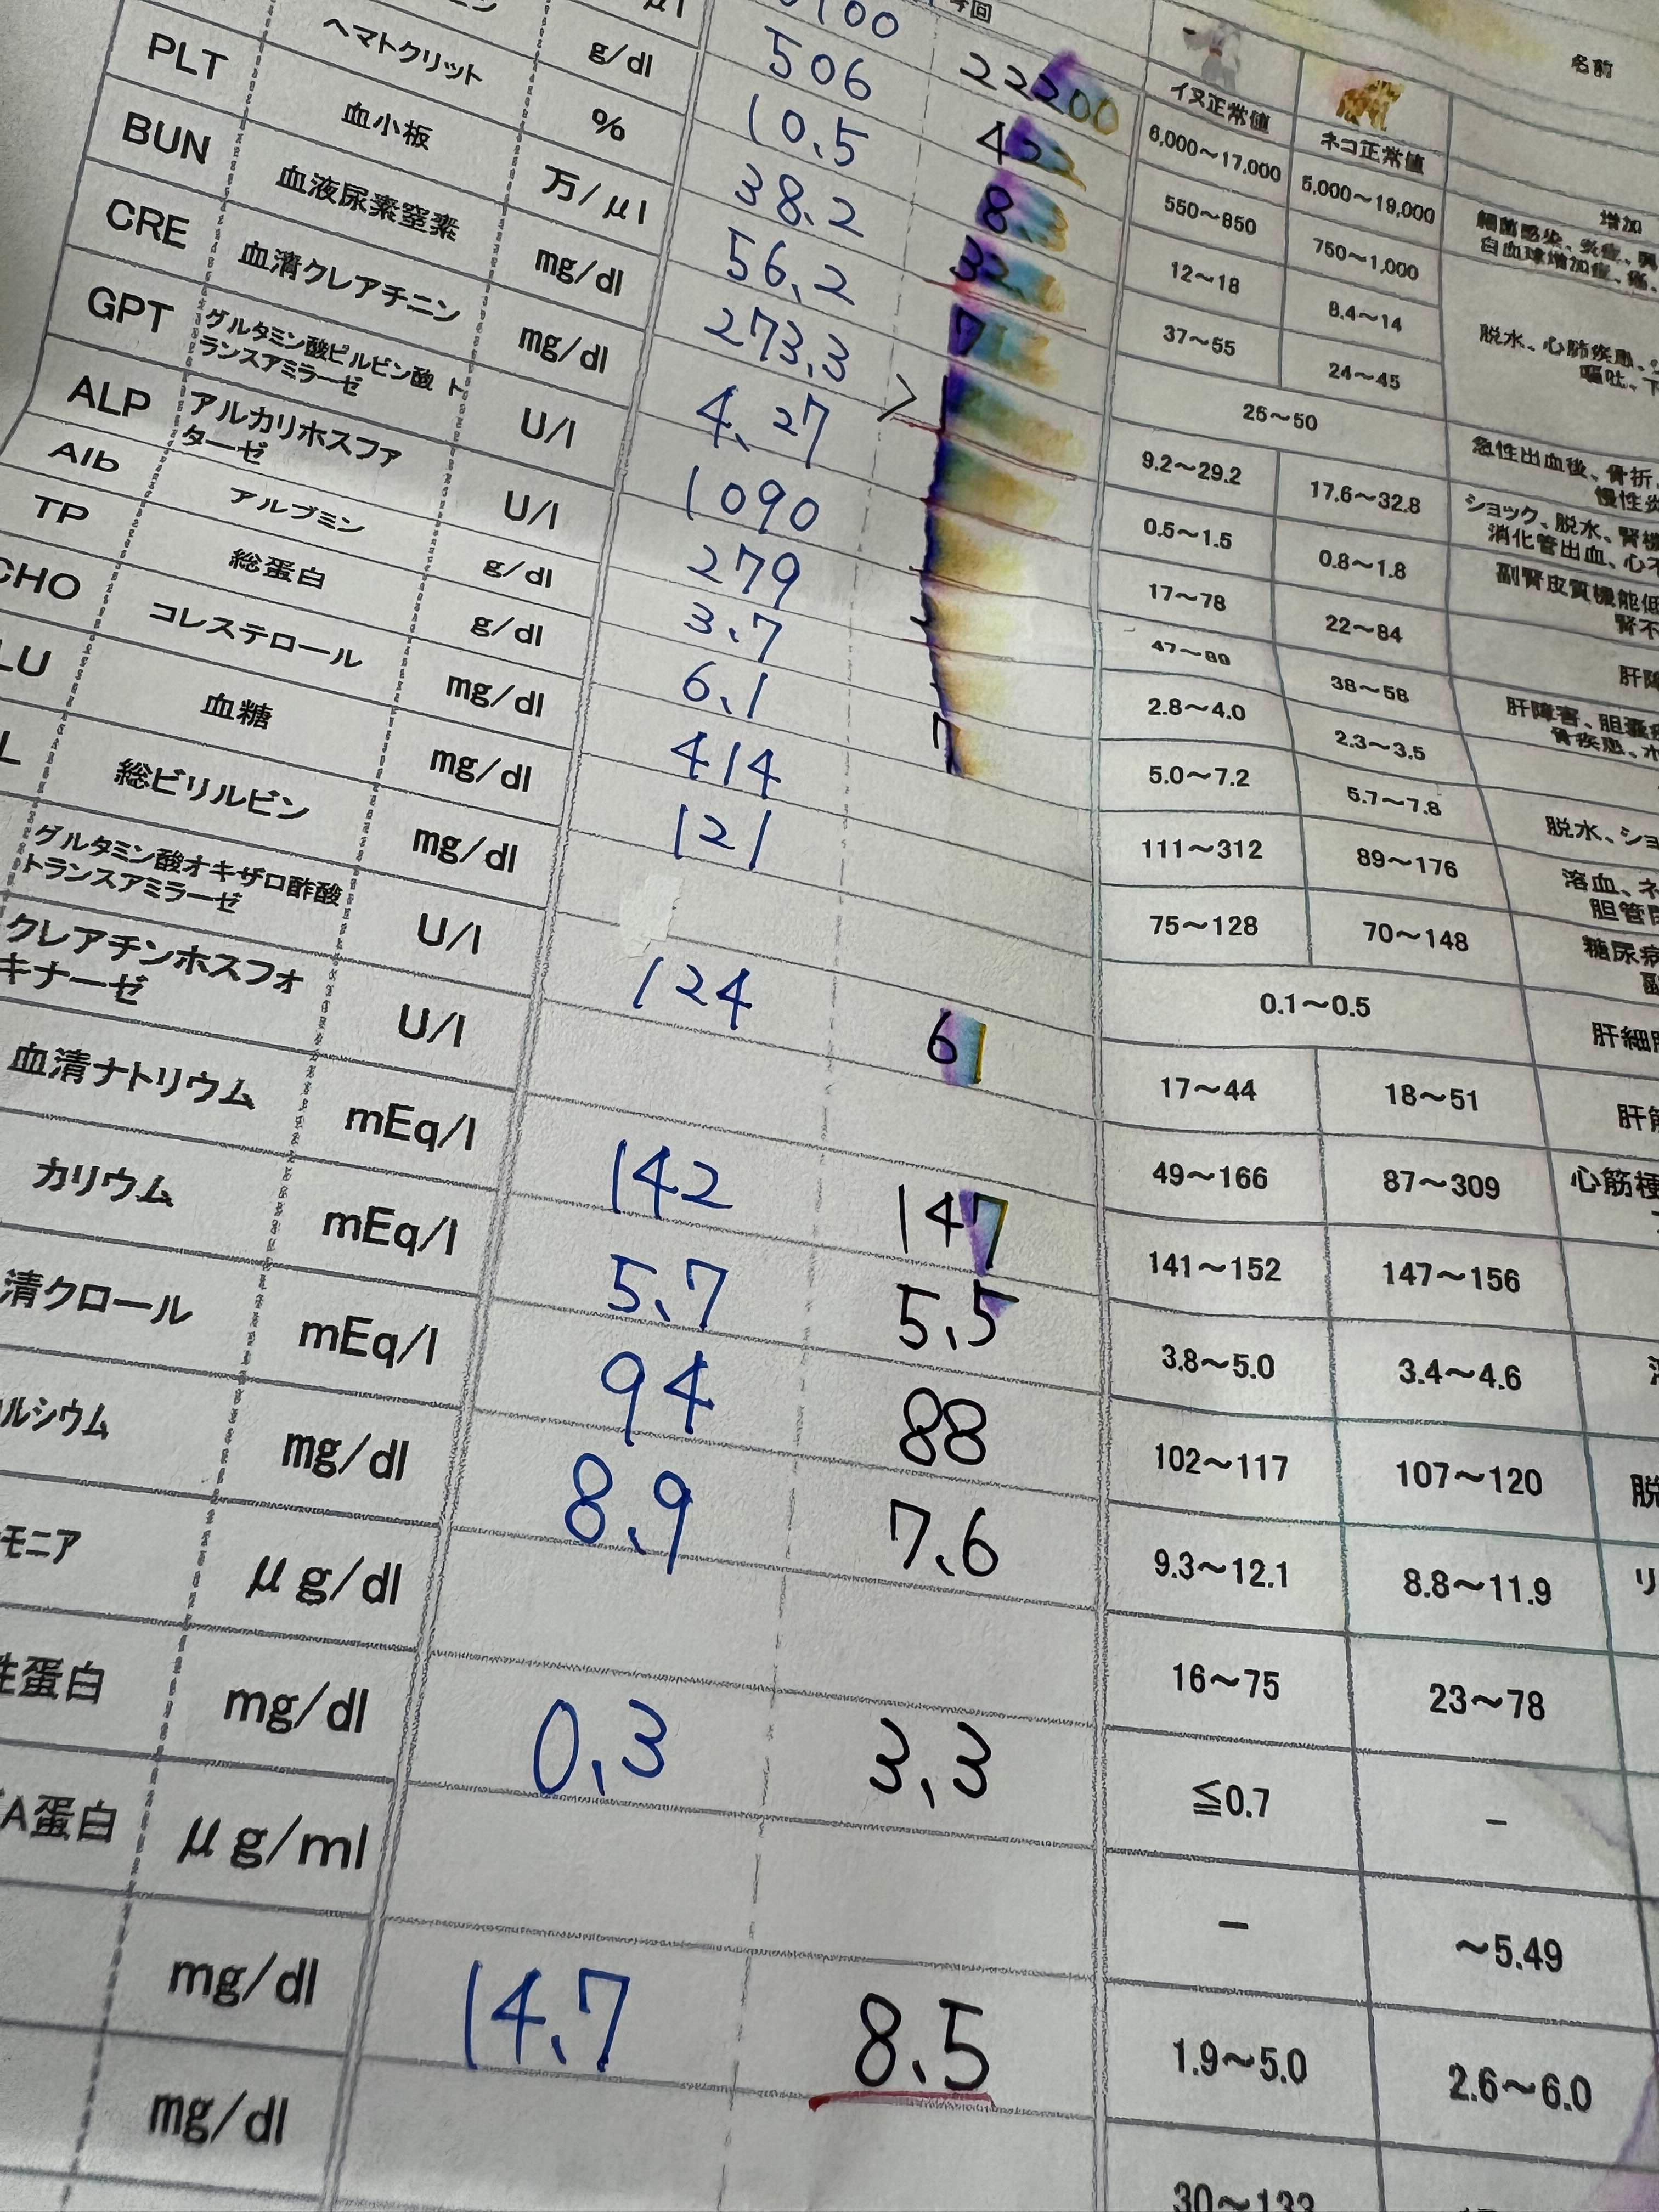 今回
名前
g/dl
506
22200
イヌ正常値
ネコ正常値
ヘマトクリット
%
10.5
6,000～17,000
5,000～19,000
増加
PLT
血小板
万/μl
38.2
8
550～850
750～1,000
細菌感染、炎症、
白血球増加症、
BUN
血液尿素窒素
mg/dl
56.2
32
12～18
8.4～14
CRE
血清クレアチニン
mg/dl
273.3
7
37～55
24～45
脱水、心肺疾患、
嘔吐、下
GPT
グルタミン酸ピルビン酸 ト
ランスアミラーゼ
U/l
4.27
>
25～50
急性出血後、骨折、
慢性炎
ALP
アルカリホスファ
ターゼ
U/l
1090
9.2～29.2
17.6～32.8
ショック、脱水、腎機
消化管出血、心不
Alb
アルブミン
g/dl
279
0.5～1.5
0.8～1.8
副腎皮質機能低
腎不
TP
総蛋白
g/dl
3.7
17～78
22～84
肝障
CHO
コレステロール
mg/dl
6.1
47～89
38～58
肝障害、胆嚢疾
骨疾患、ホ
LU
血糖
mg/dl
414
7
2.8～4.0
2.3～3.5
L
総ビリルビン
mg/dl
121
5.0～7.2
5.7～7.8
脱水、ショ
グルタミン酸オキザロ酢酸
トランスアミラーゼ
U/l
111～312
89～176
溶血、ネ
胆管閉
クレアチンホスフォ
キナーゼ
U/l
124
61
75～128
70～148
糖尿病
副
0.1～0.5
肝細胞
血清ナトリウム
mEq/l
142
147
17～44
18～51
カリウム
mEq/l
5.7
5.5
49～166
87～309
心筋梗
清クロール
mEq/l
94
88
141～152
147～156
ルシウム
mg/dl
8.9
7.6
3.8～5.0
3.4～4.6
モニア
μg/dl
102～117
107～120
脱
性蛋白
mg/dl
0.3
3.3
9.3～12.1
8.8～11.9
リ
A蛋白
μg/ml
16～75
23～78
mg/dl
14.7
8.5
≦0.7
－
mg/dl
－
～5.49
1.9～5.0
2.6～6.0
30～133